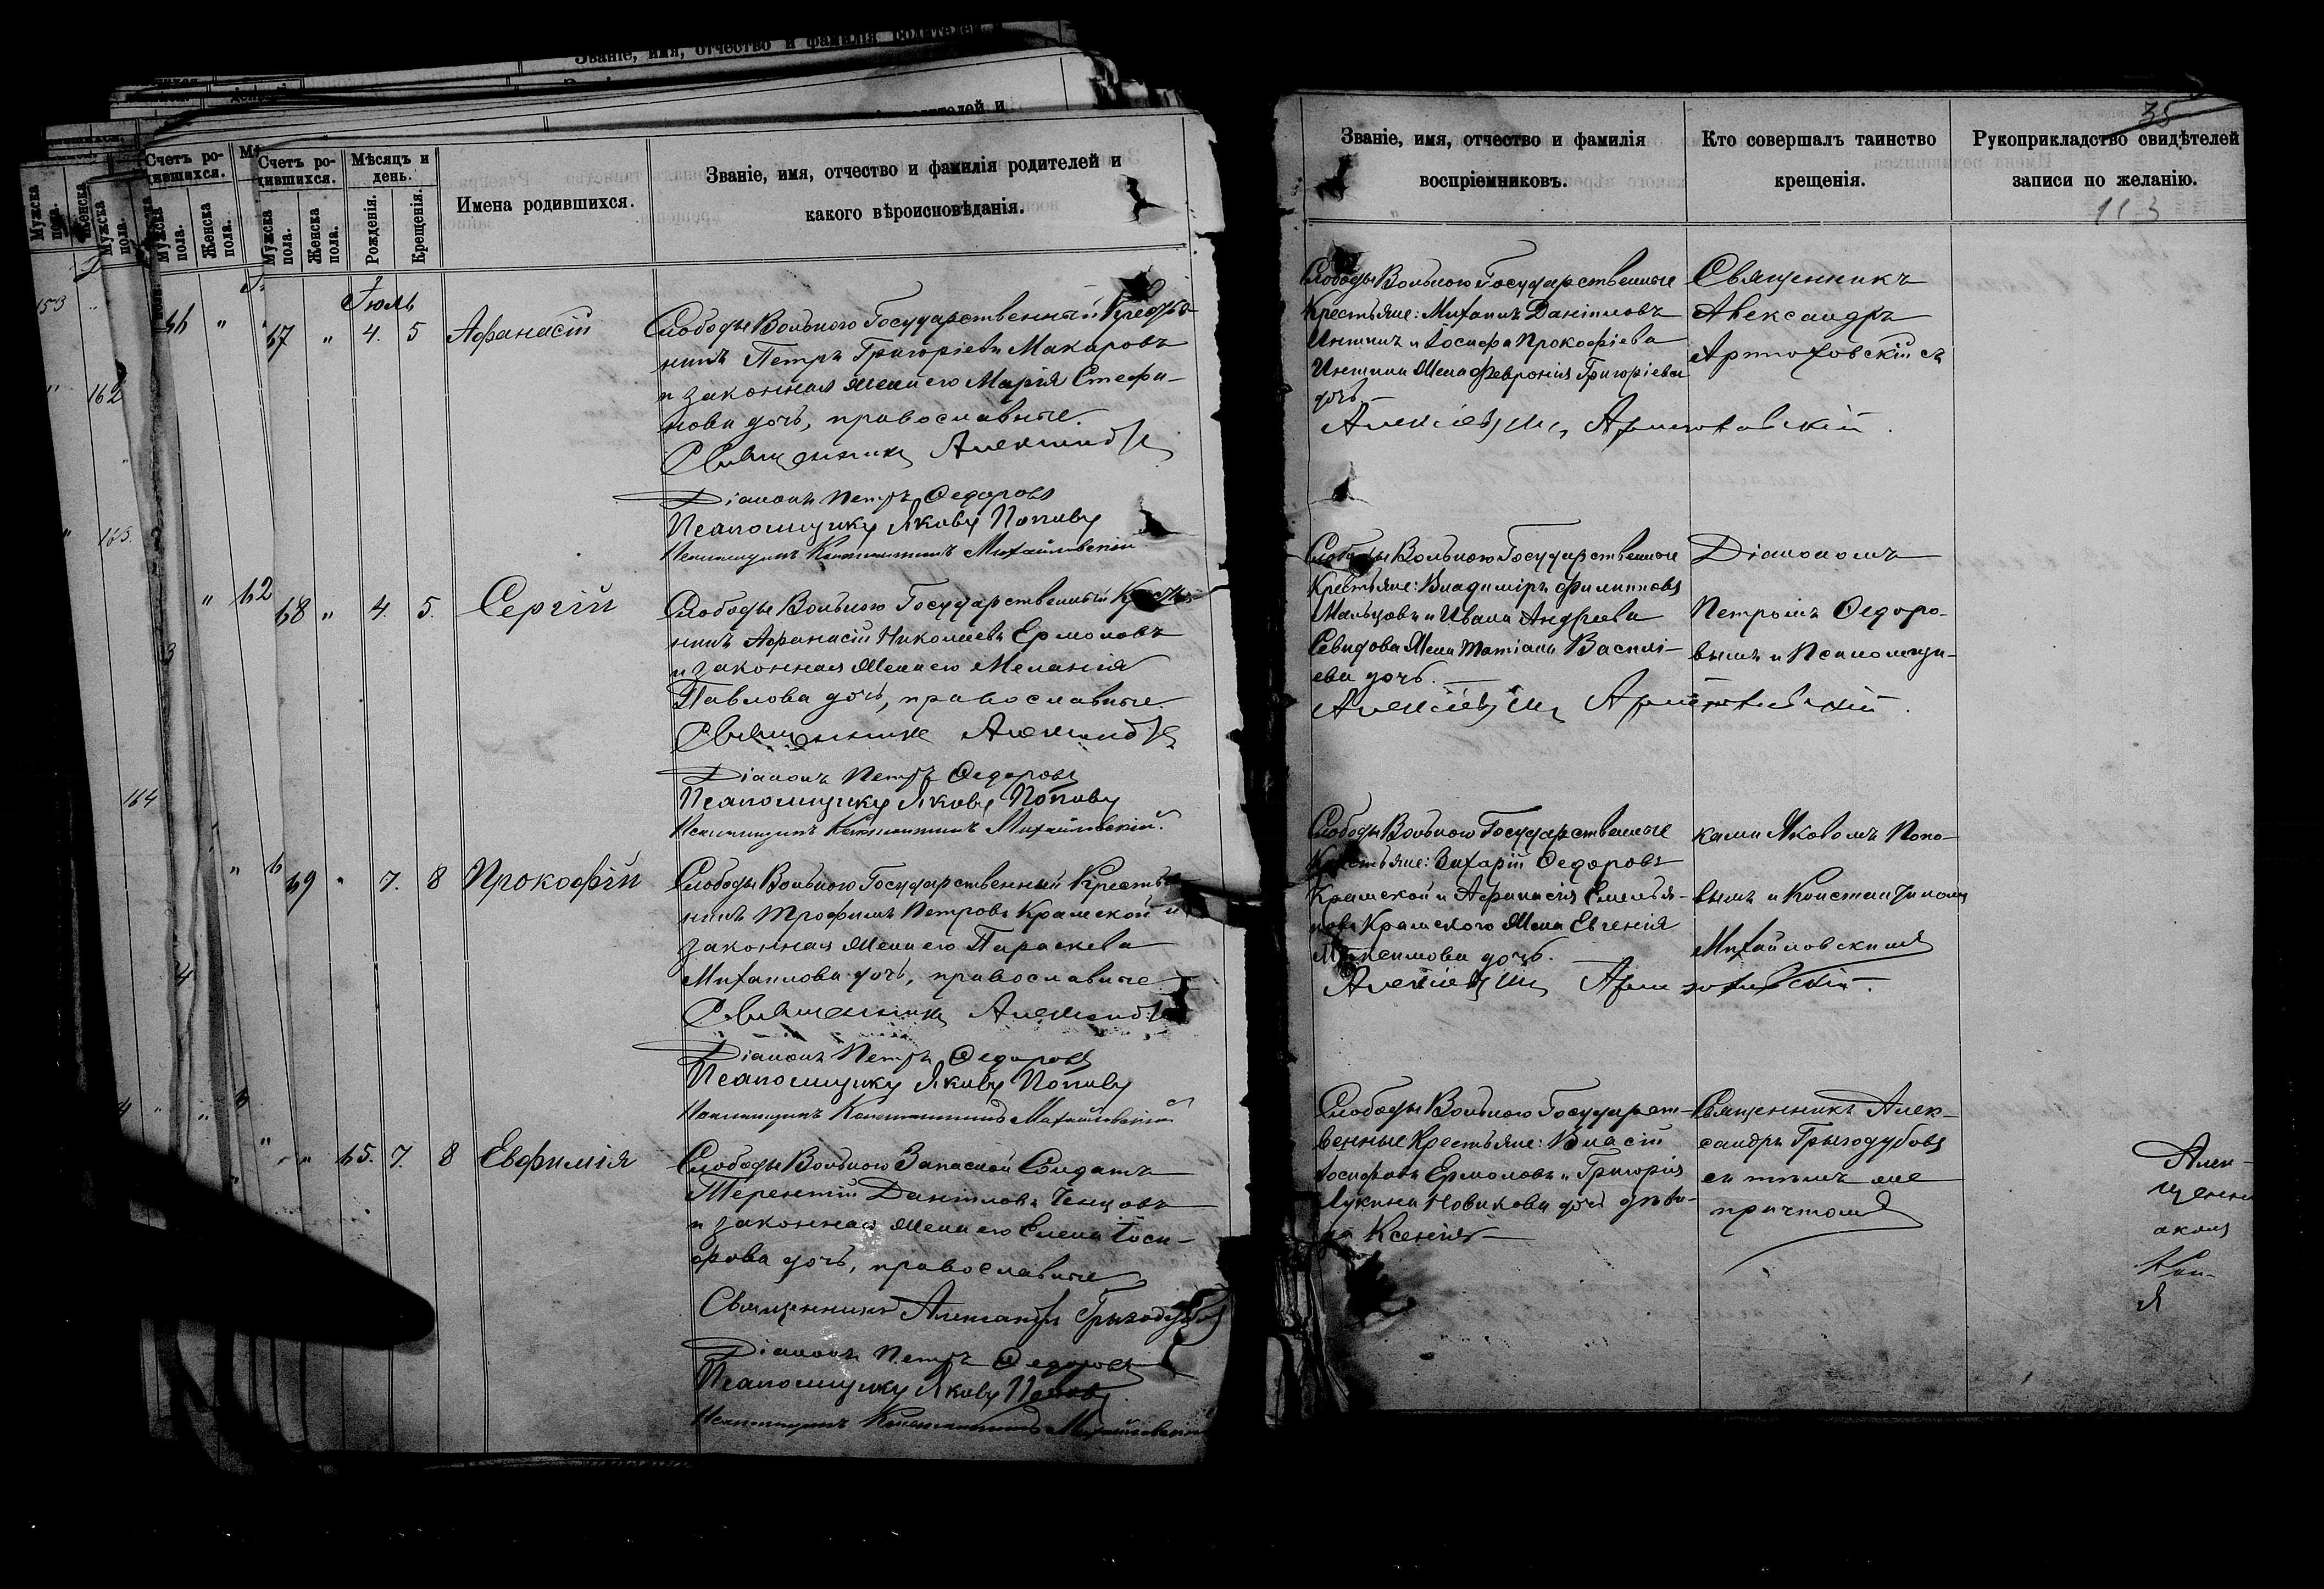 Званіе, имя, отчество и фамилія родителей
Счетъ ро-
дившихся.
Счетъ ро-
дившихся.
Мѣсяцъ и
день.
Имена родившихся.
Званіе, имя, отчество и фамилія родителей и
какого вѣроисповѣданія.
Мужска
пола.
Женска
пола.
Мужска
пола.
Женска
пола.
Рожденія.
Крещенія.
Іюль
4. 5 Афанасій
Слободы Вольного Государственный Крестья-
нинъ Петръ Григоріевъ Макаровъ
и законная жена его Марія Стефа-
нова дочь, православные.
Священникъ Александръ
Діаконъ Петръ Ѳедоровъ
Псаломщикъ Яковъ Поповъ
Псаломщикъ Константинъ Михайловскій
68 " 4. 5. Сергій
Слободы Вольного Государственный Крестья-
нинъ Афанасій Николаевъ Ермоловъ
и законная жена его Меланія
Павлова дочь, православные.
Священникъ Александръ
Діаконъ Петръ Ѳедоровъ
Псаломщикъ Яковъ Поповъ
Псаломщикъ Константинъ Михайловскій.
69 " 7. 8 Прокофій
Слободы Вольного Государственный Крестья-
нинъ Трофимъ Петровъ Крамской и
законная жена его Параскева
Михаилова дочь, православные
Священникъ Александръ
Діаконъ Петръ Ѳедоровъ
Псаломщикъ Яковъ Поповъ
Псаломщикъ Константинъ Михайловскій
" 65. 7. 8 Евфимія
Слободы Вольного Запасной Солдатъ
Терентій Даніиловъ Ченцовъ
и законная жена его Елена Іоси-
фова дочь, православные
Священникъ Александръ Грызодубовъ
Діаконъ Петръ Ѳедоровъ
Псаломщикъ Яковъ Поповъ
Псаломщикъ Константинъ Михайловскій
153
162
163.
164
62
35
Званіе, имя, отчество и фамилія
воспріемниковъ.
Кто совершалъ таинство
крещенія.
Рукоприкладство свидѣтелей
записи по желанію.
Слободы Вольного Государственные
Крестьяне: Михаилъ Даніиловъ
и Іосифа Прокофіева
жена Февронія Григоріева
дочь.
Алексіевичъ Артюховскій.
Священникъ
Александръ
Артюховскій съ
Слободы Вольного Государственные
Крестьяне: Владиміръ Филипповъ
Мальцовъ и Ивана Андреева
Севидова жена Татіана Василі-
ева дочь.
Алексіевичъ Артюховскій.
Діакономъ
Петромъ Ѳедоро-
вымъ и Псаломщи-
Слободы Вольного Государственные
Крестьяне: Захарій Ѳедоровъ
Крамской и Афанасія Емелья-
нова Крамского жена Евгенія
Максимова дочь.
Алексіевичъ Артюховскій.
ками Яковомъ Попо-
вымъ и Константиномъ
Михайловскимъ
Слободы Вольного Государст-
венные Крестьяне: Власій
Іосифовъ Ермоловъ и Григорія
Лукина Новикова дочь дѣви-
ца Ксенія
Священникъ Алек-
сандръ Грызодубовъ
съ тѣмъ же
причтомъ
Алек-